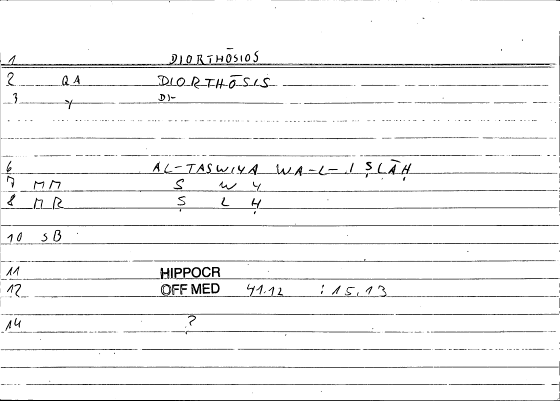 1 DIORTHŌSIOS
2 QA DIORTHŌSIS
3 Y DI-
6 AL-TASWIYA WA-L-IṢLĀḤ
7 MM S W Y
8 MR Ṣ L Ḥ
10 SB
11 HIPPOCR
12 OFF MED 41.12 : 15.13
14 ?